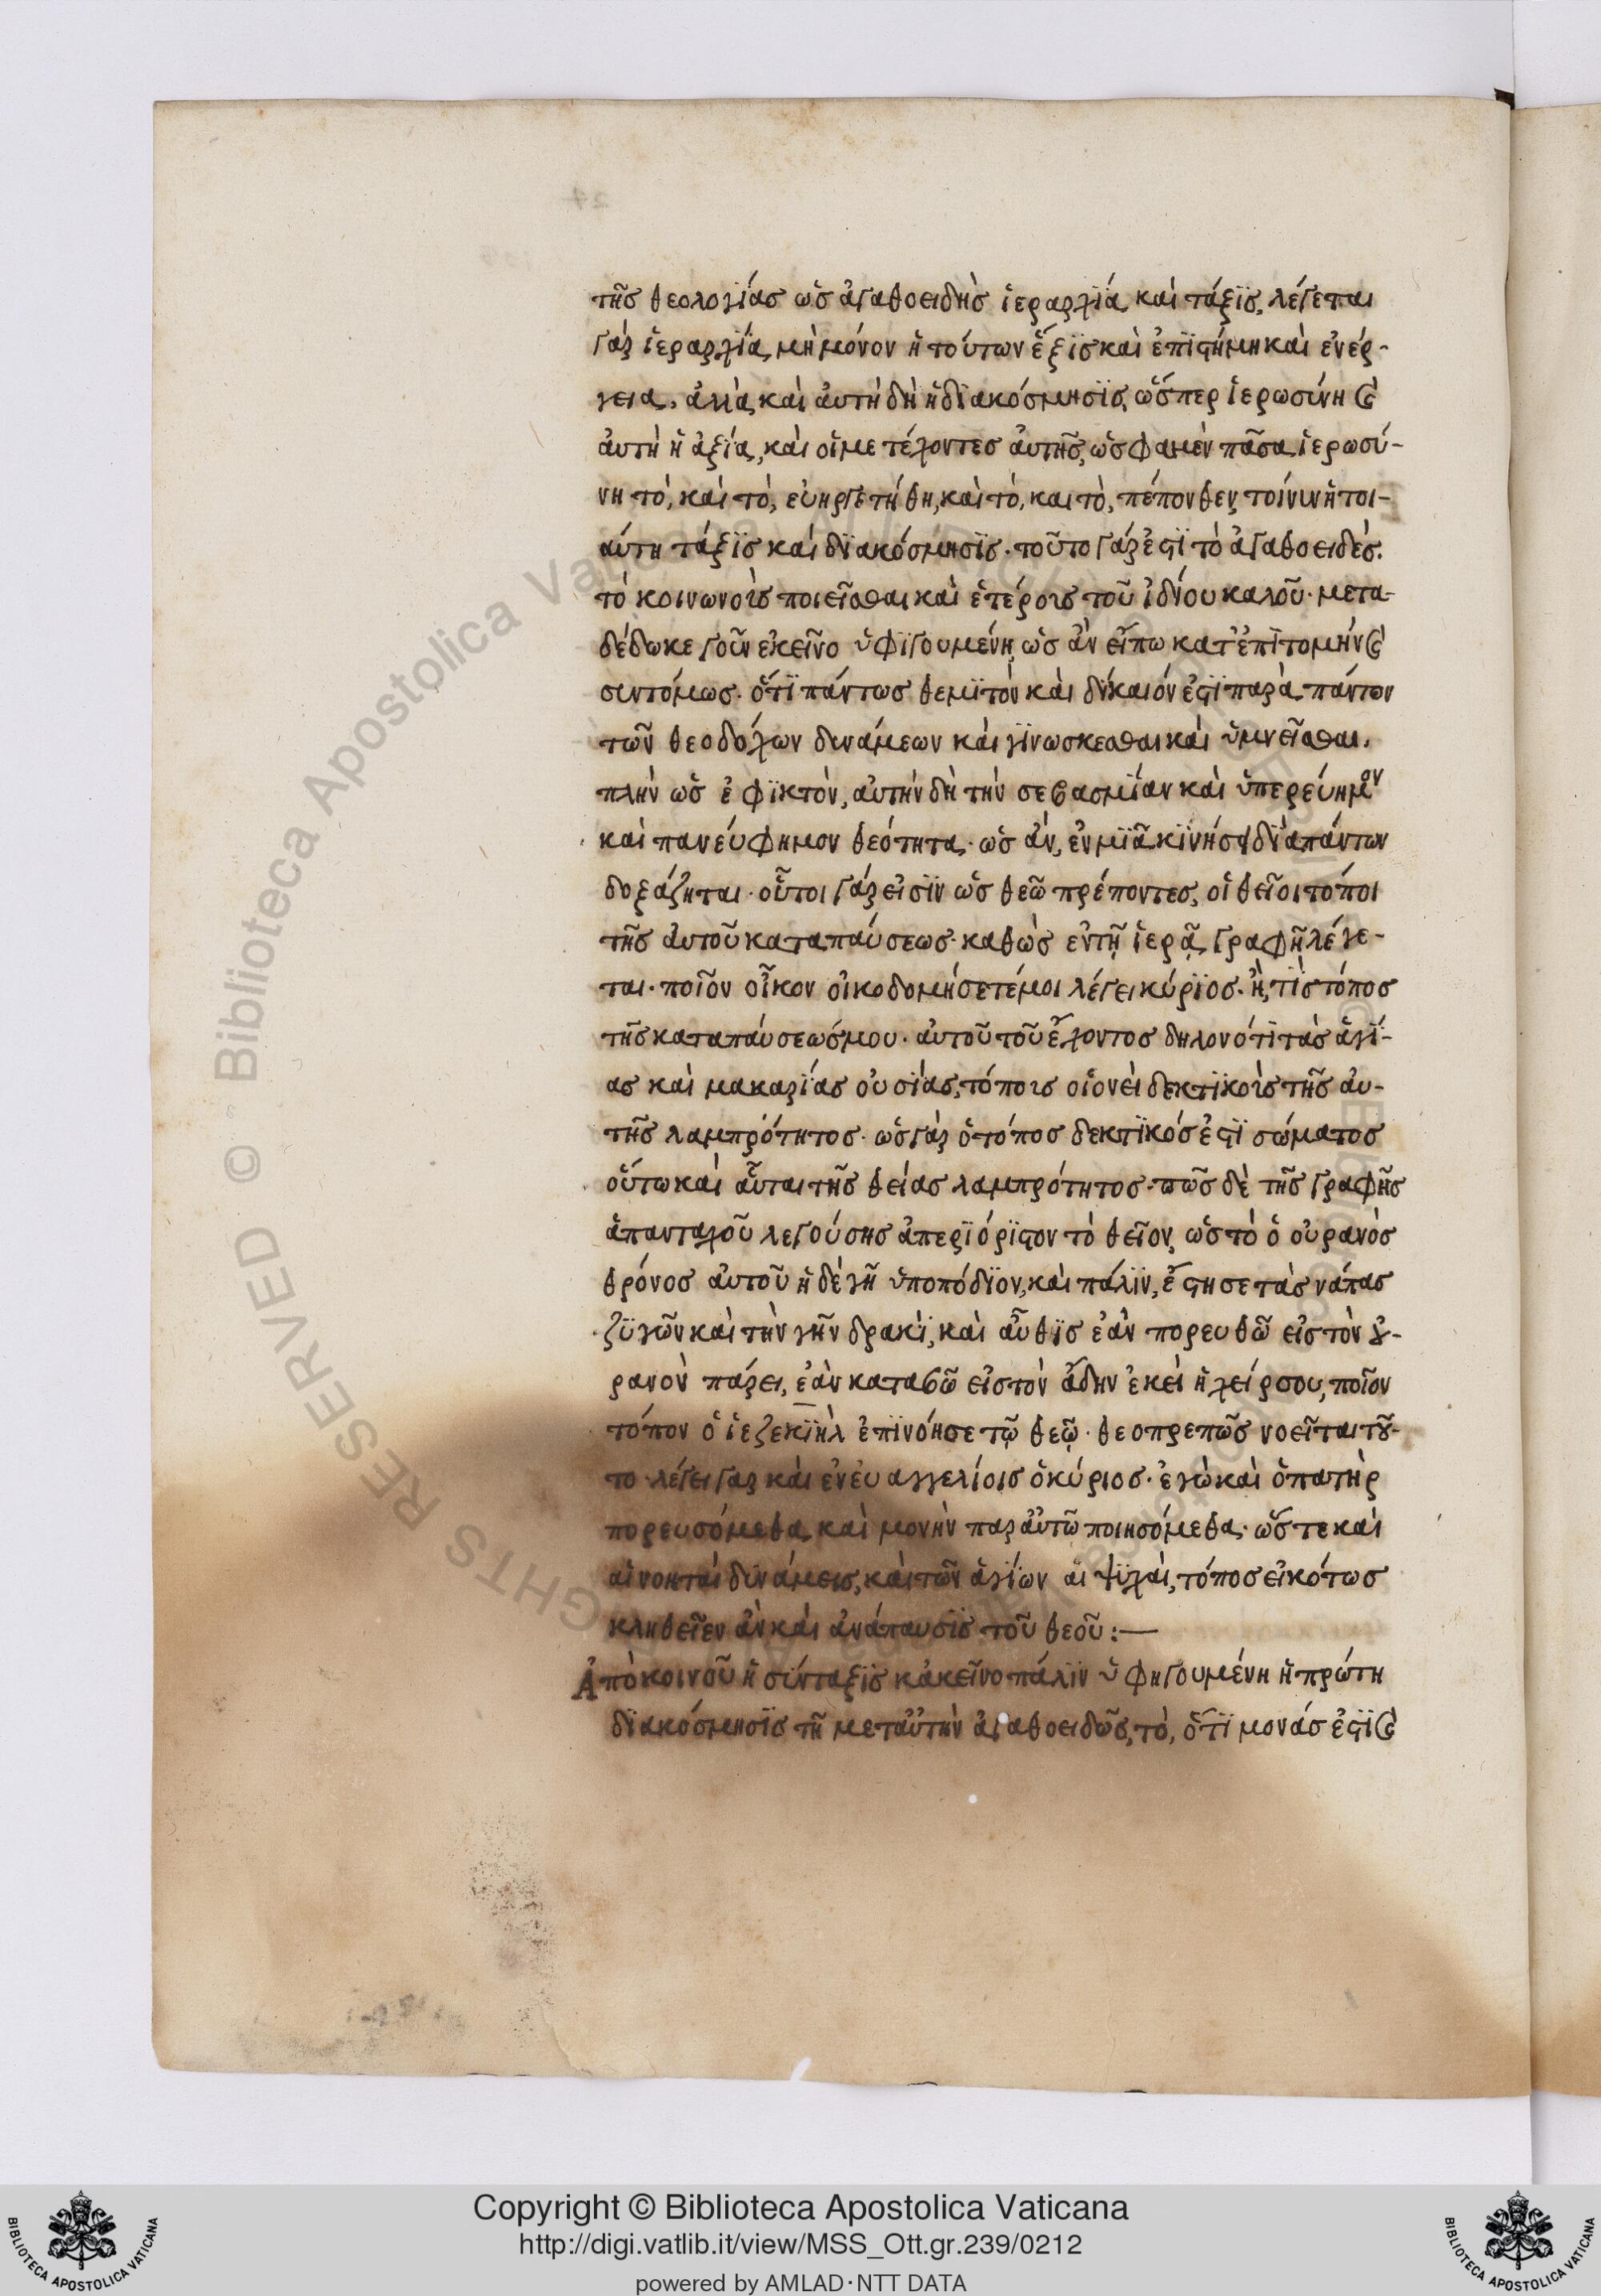 τῆς θεολογίας ὡς ἀγαθοειδὴς ἱεραρχία καὶ τάξϊς, λέγεται
γὰρ ἱεραρχΐα, μὴ μόνον ἡ τούτων ἕξϊς καὶ ἐπϊστήμη καὶ ἐνέρ-
γεια, ἀλλὰ καὶ ἀυτὴ δὴ ἡ δϊακόσμησϊς, ὥσπερ ἱερωσύνη καὶ
ἀυτὴ ἡ ἀξία, καὶ οἱ μετέχοντες ἀυτῆς, ὡς φαμὲν πᾶσα ἱερωσύ-
νη τὸ, καὶ τὸ, εὐηργετήθη, καὶ τὸ, και τὸ, πέπονθεν, τοίνυν ἡ τοι-
αύτη τάξϊς καὶ δϊακόσμησϊς· τοῦτο γάρ ἐστϊ τὸ ἀγαθοειδές.
τὸ κοινωνοὶς ποιεῖσθαι καὶ ἑτέροις τοῦ ἰδίου καλοῦ· μετα-
δέδωκε γοῦν ἐκεῖνο ὑφϊγουμένη, ὡς ἂν εἴπω κατ' ἐπϊτομὴν καὶ
συντόμως· ὅτϊ πάντως θεμϊτὸν καὶ δίκαιόν ἐστϊ παρὰ πάντων
τῶν θεοδόχων δυνάμεων καὶ γϊνωσκεσθαι καὶ ὑμνεῖσθαι,
πλὴν ὡς ἐφϊκτὸν, ἀυτὴν δὴ τὴν σεβασμΐαν καὶ ὑπερεύημον
καὶ πανεύφημον θεότητα· ὡς ἂν, ἐν μϊᾶ κϊνήσει δϊαπάντων
δοξάζηται· οὗτοι γάρ εἰσϊν ὡς θεῶ πρέποντες, οἱ θεῖοι τόποι
τῆς ἀυτοῦ καταπαύσεως· καθὼς ἐν τῇ ἱερᾷ γραφῇ λέγε-
ται· ποῖον οἶκον οἰκοδομήσετέ μοι λέγει κύρϊος· ἢ, τϊς τόπος
τῆς καταπαύσεώς μου· αὐτοῦ τοῦ ἔχοντος δηλονότϊ τὰς ἁγϊ-
ας καὶ μακαρΐας οὐσΐας, τόποις οἱονεὶ δεκτϊκοῖς τῆς ἀυ-
τῆς λαμπρότητος· ὡς γὰρ ὁ τόπος δεκτϊκός ἐστϊ σώματος
οὕτω καὶ αὗται τῆς θείας λαμπρότητος· πῶς δὲ τῆς γραφῆς
ἁπανταχοῦ λεγούσης ἀπερϊόρϊστον τὸ θεῖον, ὡς τὸ ὁ οὐρανὸς
θρόνος αὐτοῦ ἡ δὲ γῆ ὑποπόδϊον, καὶ πάλϊν, ἔστησε τὰς νάπας
ζϋγῶν καὶ τὴν γῆν δρακὶ, καὶ αὖθϊς ἐὰν πορευθῶ εἰς τὸν ȣ-
ρανὸν πάρει, ἐὰν καταβῶ εἰς τὸν ἅδην ἐκεὶ ἡ χείρ σου, ποῖον
τόπον ὁ ἰεζεκϊὴλ ἐπϊνόησε τῷ θεῷ· θεοπρεπῶς νοεῖται τȣ̃-
το· λέγει γαρ καὶ ἐν ἐυαγγελίοις ὁ κύριος· ἐγὼ καὶ ὁ πατὴρ
πορευσόμεθα καὶ μονὴν παρ' ἀυτῶ ποιησόμεθα· ὥστε καὶ
αἱ νοηταὶ δϋνάμεις, καὶ τῶν ἁγίων αἱ ψϋχαὶ, τόπος εἰκότως
κληθεῖεν ἂν καὶ ἀνάπαυσϊς τοῦ θεοῦ:—
Ἀπὸ κοινοῦ ἡ σύνταξϊς κἀκεῖνο πάλϊν ὑφηγουμένη ἡ πρώτη
δϊακόσμησϊς τῆ μετ' αὐτὴν ἀγαθοειδῶς, τὸ, ὅτϊ μονάς ἐστϊ καὶ
Copyright © Biblioteca Apostolica Vaticana
http://digi.vatlib.it/view/MSS_Ott.gr.239/0212
powered by AMLAD·NTT DATA